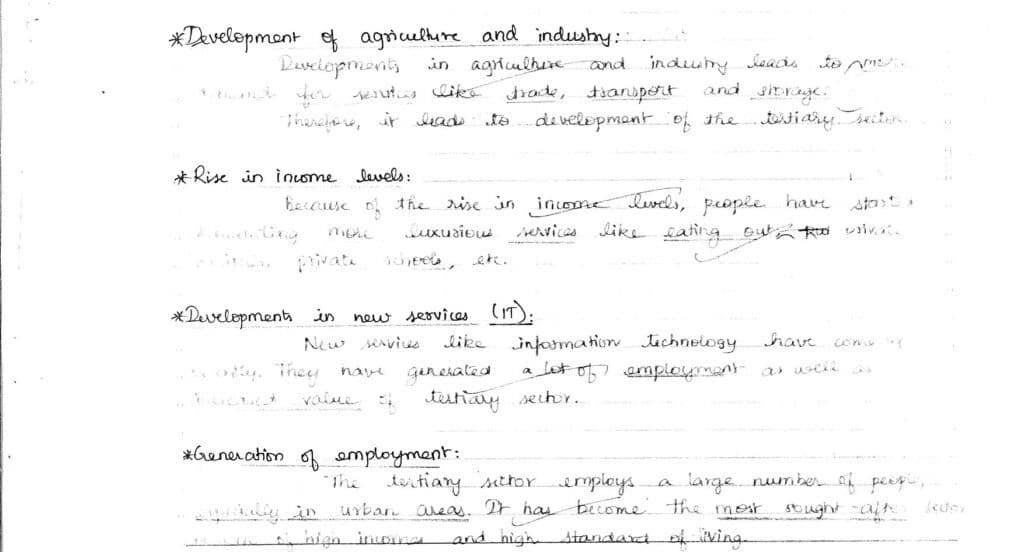 *Development of agriculture and industry:
Developments in agriculture and industry leads to more
for services like trade, transport and storage.
Therefore, it leads to development of the tertiary sector.
*Rise in income levels:
Because of the rise in income levels, people have
more luxurious services like eating out,
private schools, etc.
*Developments in new services (IT):
New services like information technology have come
They have generated a lot of employment as well as
value of tertiary sector.
*Generation of employment:
The tertiary sector employs a large number of people,
especially in urban areas. It has become the most sought-after sector
of high incomes and high standard of living.